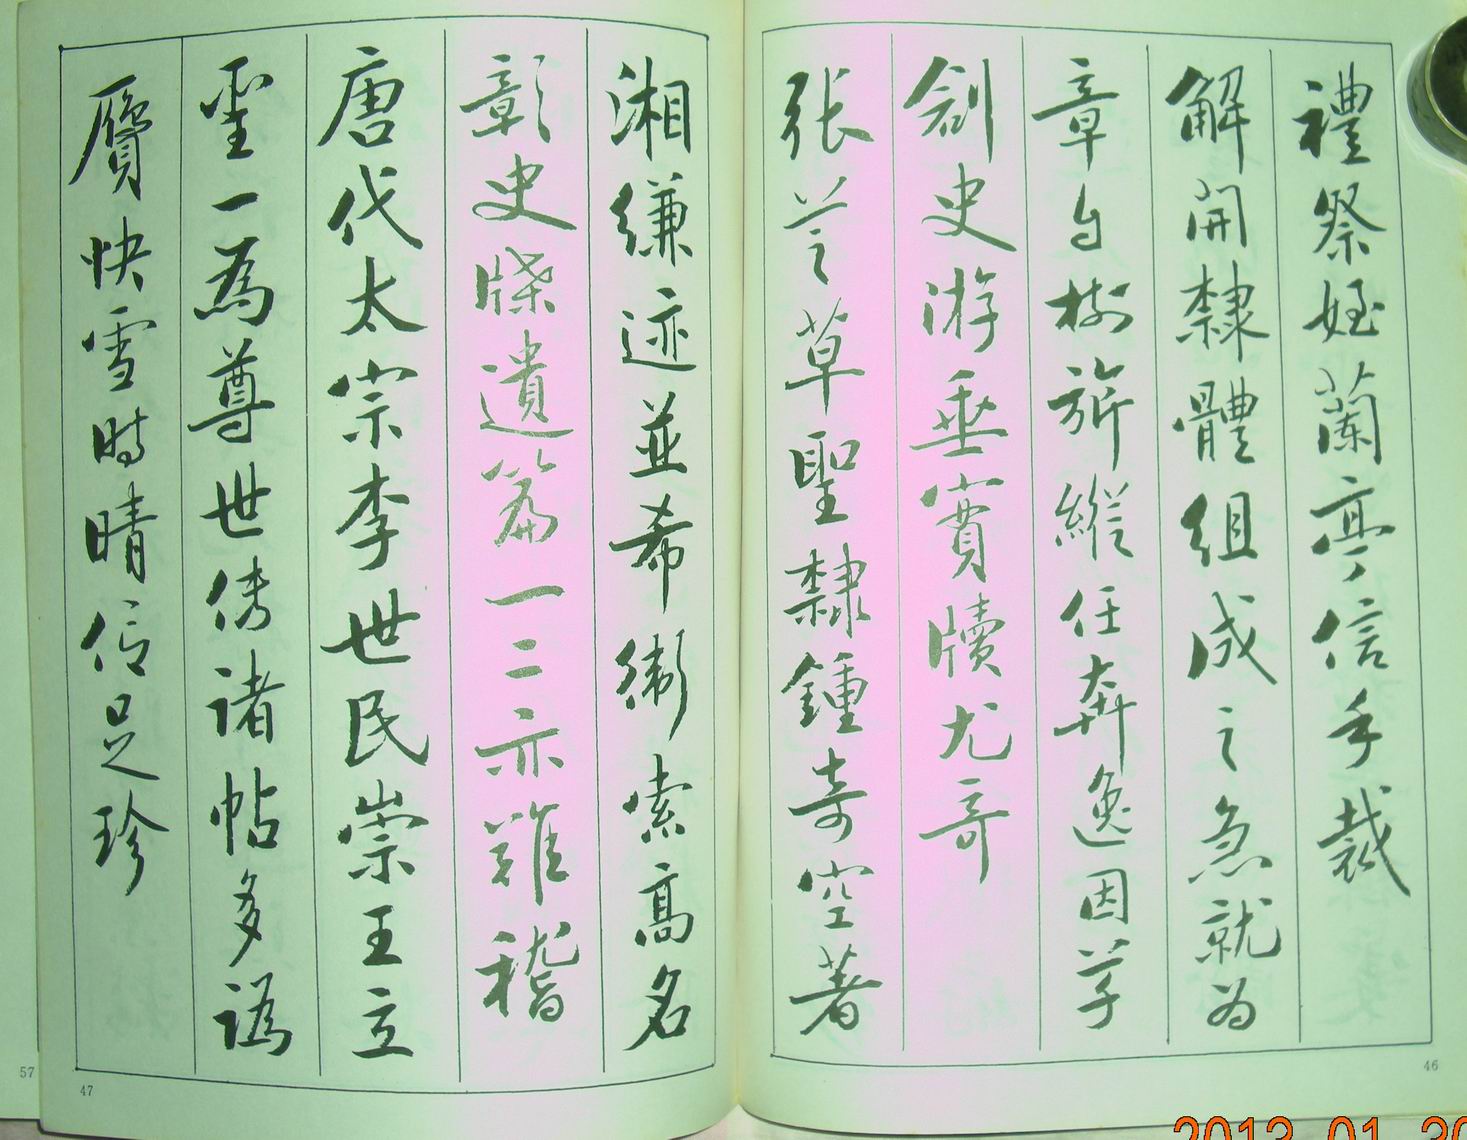 禮祭姪蘭亭信手裁
解開隸體組成之急就為
章自樹旂縱任奔逸因草
創史游垂實牘尤奇
张芝草聖隸鍾奇空著
湘縑迹並希衛索高名
彰史牒遺篇一二亦難稽
唐代太宗李世民崇王立
聖一為尊世傳諸帖多譌
贗快雪時晴信足珍
46
47
57
2013 01 20